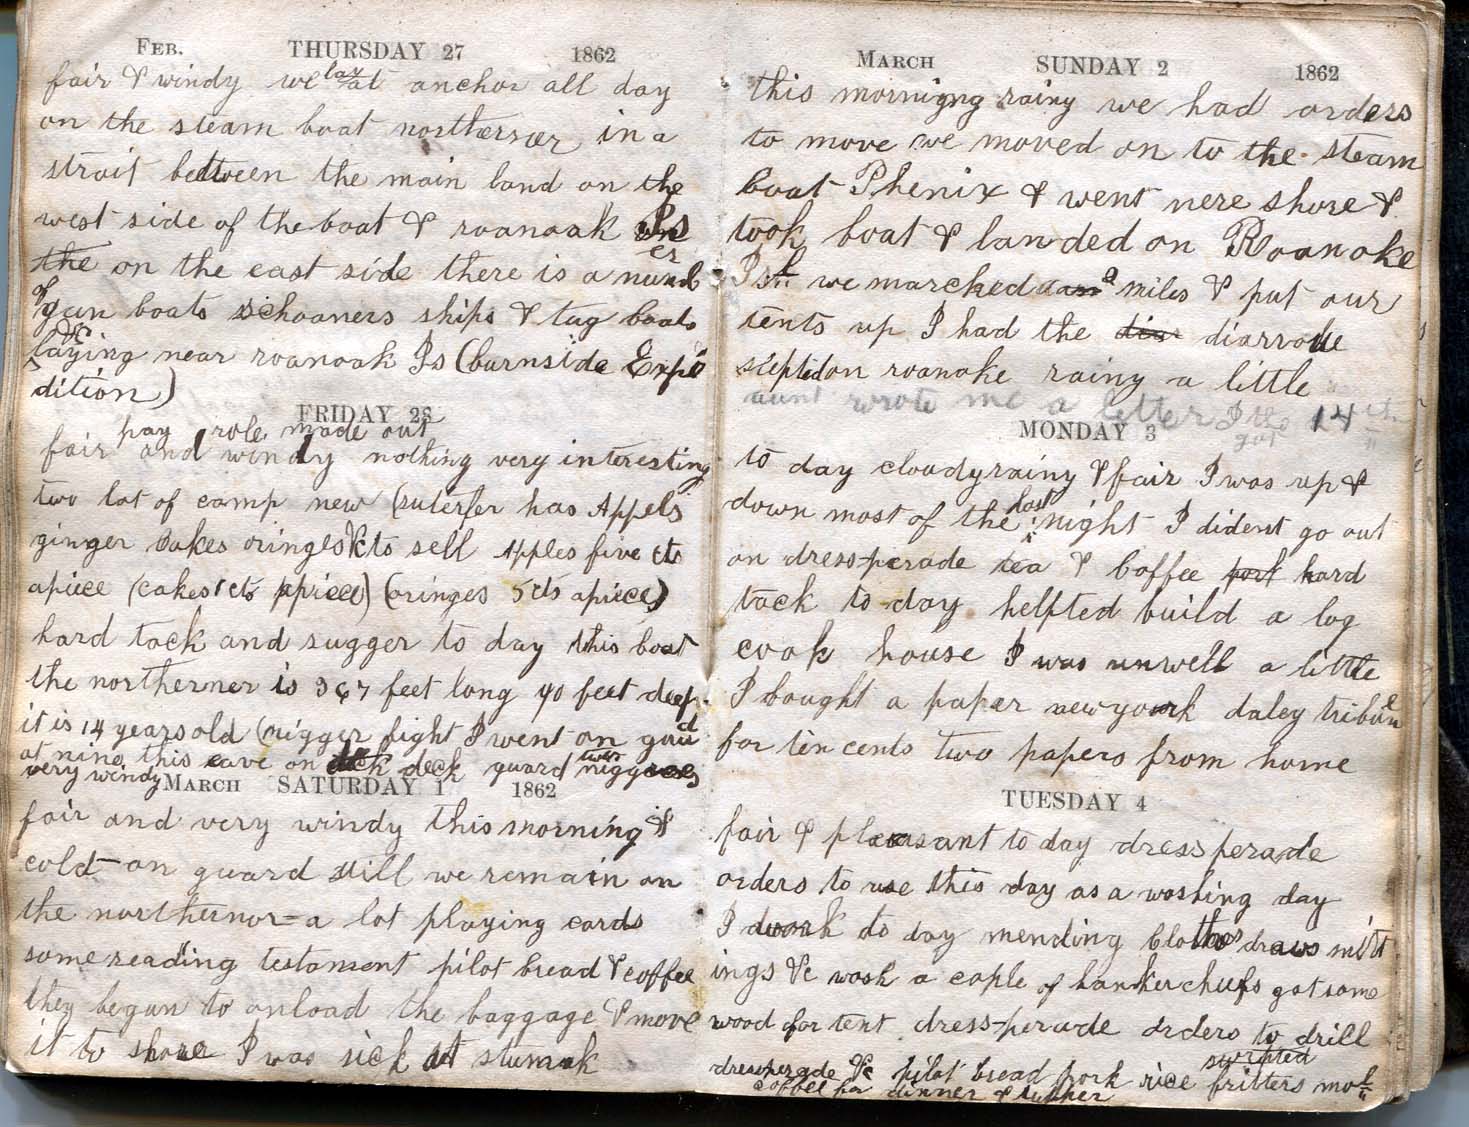 FEB. THURSDAY 27 1862
fair & windy we lay at anchor all day
on the steam boat northerner in a
strait between the main land on the
west side of the boat & roanoak Is
the on the east side there is a numb er
of gun boats schooners ships & tug boats
&c laying near roanoak Is (burnside Expe
dition)
FRIDAY 28
pay role made out
fair and windy nothing very interesting
two lot of camp new (suterler has Appels
ginger cakes oringes &c to sell Apples five cts
apiece (cakes 1 cts apiece) (oringes 5 cts apiece)
hard tack and sugger to day this boat
the northerner is 367 feet long 40 feet deep
it is 14 years old (nigger fight I went on gaurd
at nine this eave on deck guard over niggores
very windy
MARCH SATURDAY 1 1862
fair and very windy this morning &
cold on guard still we remain on
the northernor = a lot playing cards
some reading testament pilot bread & coffee
they begun to onload the baggage & move
it to shore I was sick at stumak
MARCH SUNDAY 2 1862
this mornigng rainy we had orders
to move we moved on to the steam
boat Phenix & went nere shore &
took boat & landed on Roanoke
Isl. we marched a miles & put our
tents up I had the diarrode
sleptid on roanoke rainy a little
aunt wrote me a letter I got the 14th
MONDAY 3
to day cloudy rainy & fair I was up &
down most of the last night I dident go out
on dress-perade tea & coffee hard
tack to-day helpted build a log
cook house I was unwell a little
I bought a paper newyork daley tribune
for ten cents two papers from home
TUESDAY 4
fair & pleasant to day dress perade
orders to use this day as a washing day
I work to day mending clothes draws mitt
ings &c wosh a cople of hankerchufs got some
wood for tent dress-perade orders to drill
dressperade &c pilot bread pork rice fritters mol
coffee for dinner & supper